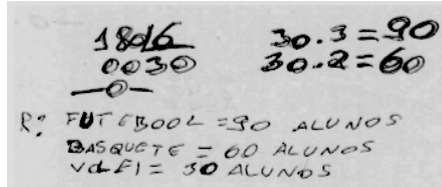 180|6 30.3=90
0030 30.2=60
0
R: FUTEBOOL =90 ALUNOS
BASQUETE = 60 ALUNOS
VOLEI = 30 ALUNOS